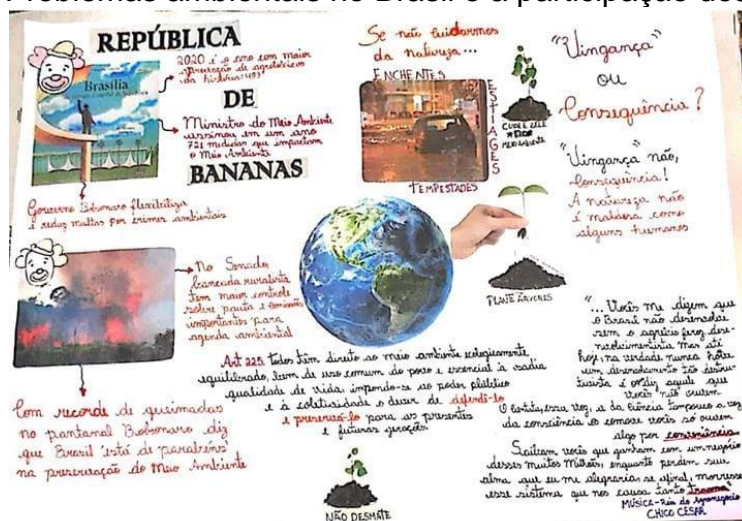 Problemas ambientais no Brasil e a participação dos
REPÚBLICA
DE
BANANAS
Brasília
2020 é o ano com maior
aprovação de agrotóxicos
da história: 493
Ministro do Meio Ambiente
assinou em um ano
721 medidas que impactam
o Meio Ambiente
Governo Bolsonaro flexibiliza
e reduz multas por crimes ambientais
No Senado
bancada ruralista
tem maior controle
sobre pauta e comissões
importantes para
agenda ambiental
Com recorde de queimadas
no pantanal Bolsonaro diz
que Brasil 'está de parabéns'
na preservação do Meio Ambiente
Se não cuidarmos
da Natureza...
ENCHENTES
ESTIAGES
TEMPESTADES
CUIDE E ZELE
MEIO AMBIENTE
PLANTE ÁRVORES
"Vingança"
ou
Consequência?
"Vingança" não,
Consequência!
A natureza não
é maldosa como
alguns humanos
Art 225. todos têm direito ao meio ambiente ecologicamente
equilibrado, bem de uso comum do povo e essencial à sadia
qualidade de vida, impondo-se ao poder público
e à coletividade o dever de defendê-lo
e preservá-lo para as presentes
e futuras gerações
NÃO DESMATE
"... Vocês me dizem que
o Brasil não desenvolve
sem o agrébiz feroz, dese-
nvolvimentista mas até
hoje, na verdade nunca houve
um desenvolvimento tão destru-
tivista é o que diz aquele que
vocês não ouvem
O Cientista, essa voz, a da Ciência tampouco a voz
da consciência os comove vocês só ouvem
algo por conveniência
Saibam vocês que ganham com um negócio
desses muitos Milhões, enquanto perdem sua
alma que eu me alegraria se afinal, morresse
esse sistema que nos causa tanto trauma"
MÚSICA - Réis do Agronegócio
CHICO CESAR